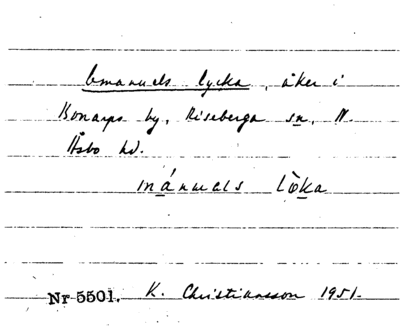 Emanuels lycka, åker i
Bonarps by, Riseberga sn, N.
Åsbo hd.
mánuels lö̀ka
Nr 5501. K. Christiansson 1951.